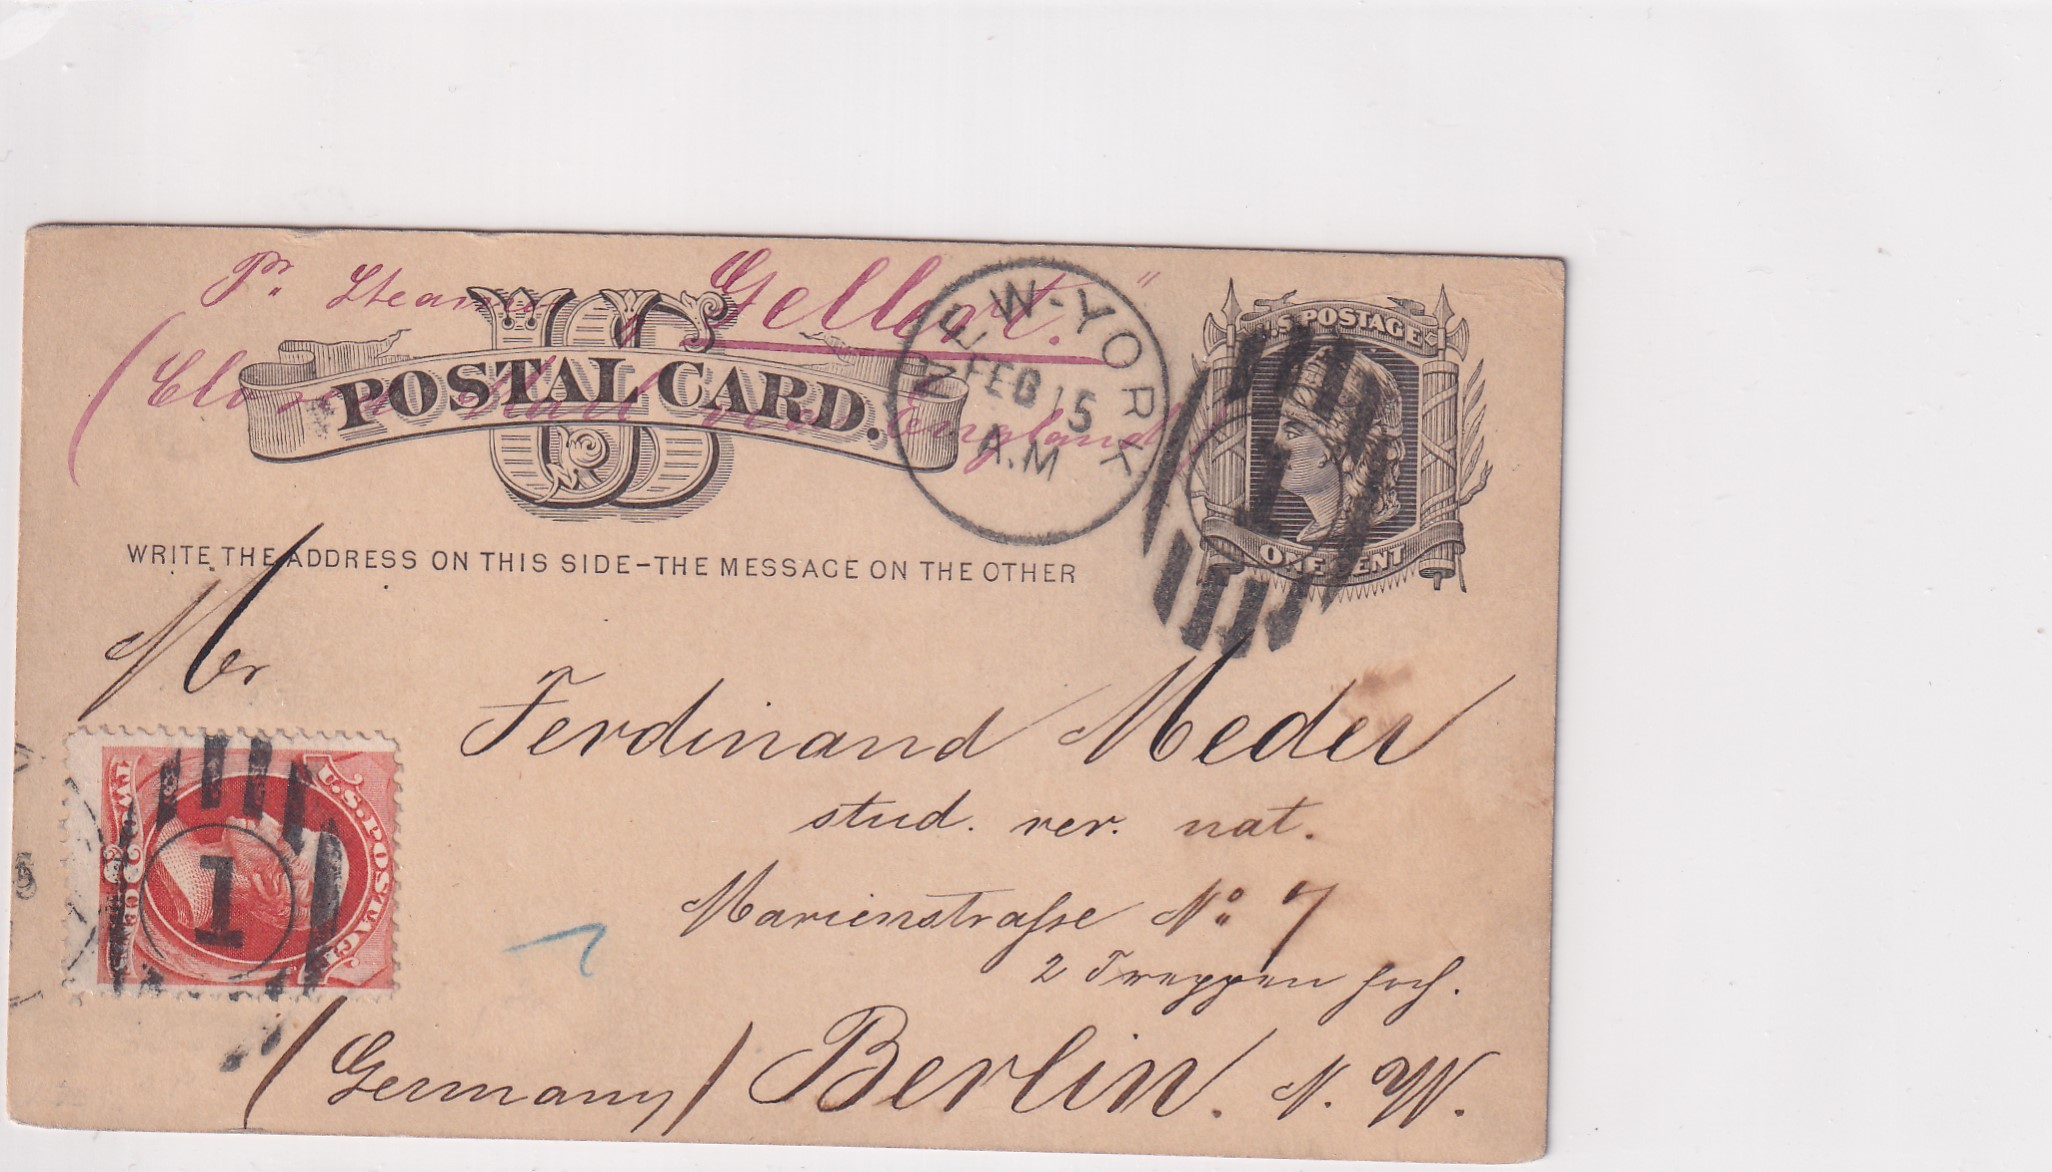 Pr. Steamer "Gellert."
(Closed Mail via England)
US
POSTAL CARD.
NEW-YORK
FEB 15
A.M
U.S. POSTAGE
1
ONE CENT
WRITE THE ADDRESS ON THIS SIDE-THE MESSAGE ON THE OTHER
Mr
Ferdinand Meder
stud. rer. nat.
Marienstraſse No 7
2 Treppen hoch.
(Germany) Berlin. N. W.
U.S. POSTAGE
1
TWO 2 CENTS